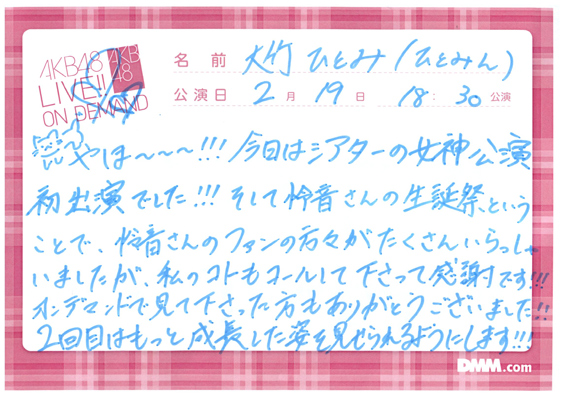 AKB48
LIVE!!
ON DEMAND
AKB
48
名前 大竹 ひとみ (ひとみん)
公演日 2月 19日 18:30公演
やほ〜〜〜!!! 今日はシアターの女神公演
初出演でした!!! そして怜音さんの生誕祭、という
ことで、怜音さんのファンの方々がたくさんいらっしゃ
いましたが、私のコトもコールして下さって感謝です!!!
オンデマンドで見て下さった方もありがとうございました!!
2回目はもっと成長した姿を見せられるようにします!!!
DMM.com